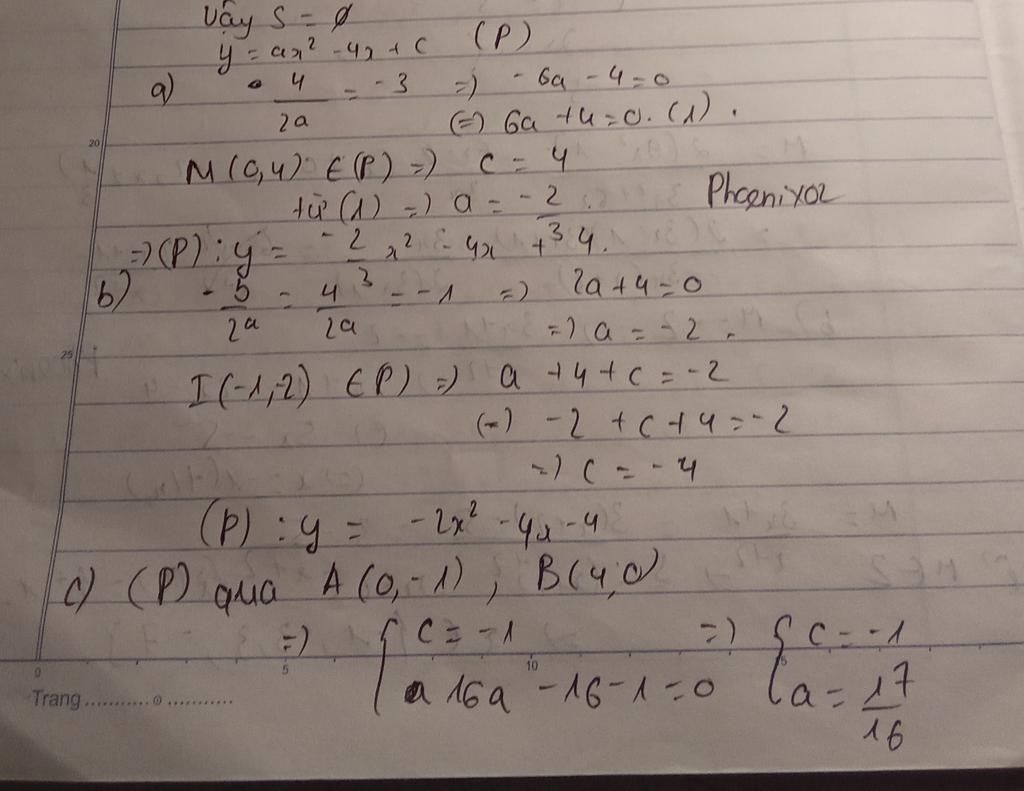 Vậy S = ∅
y = ax² - 4x + c (P)
a) 4/2a = -3 => -6a - 4 = 0
(=) 6a + 4 = 0. (1).
M(0,4) ∈ (P) => c = 4
từ (1) => a = -2/3. Phoenixoz
=> (P) : y = -2/3 x² - 4x + 4.
b) -b/2a = 4/2a = -1 => 2a + 4 = 0
=> a = -2.
I(-1,-2) ∈ P) => a + 4 + c = -2
(=) -2 + c + 4 = -2
=> c = -4
(P) : y = -2x² - 4x - 4
c) (P) qua A(0,-1), B(4,0)
=> { c = -1 => { c = -1
16a - 16 - 1 = 0 a = 17/16
20
25
0 5 10
Trang